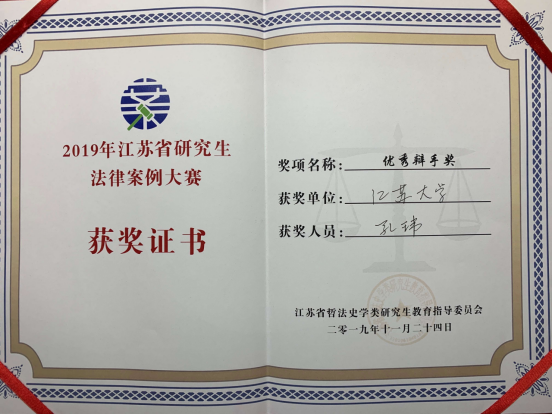 2019年江苏省研究生
法律案例大赛
获奖证书
奖项名称：优秀辩手奖
获奖单位：江苏大学
获奖人员：孔玮
江苏省哲法史学类研究生教育指导委员会
二零一九年十一月二十四日